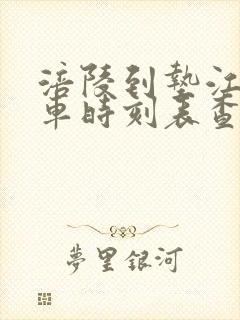 涪陵到垫江
車時刻表查
夢里銀河